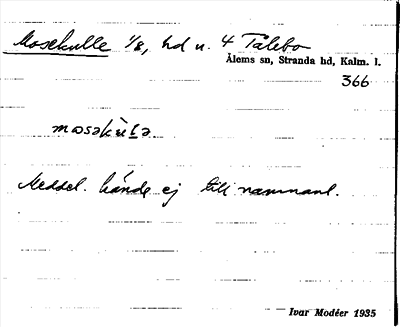 Mosekulle 1/8, hd u. 4 Talebo
Ålems sn, Stranda hd, Kalm. l.
366
mosəkùlə
Meddel. kände ej till namnanl.
Ivar Modéer 1935